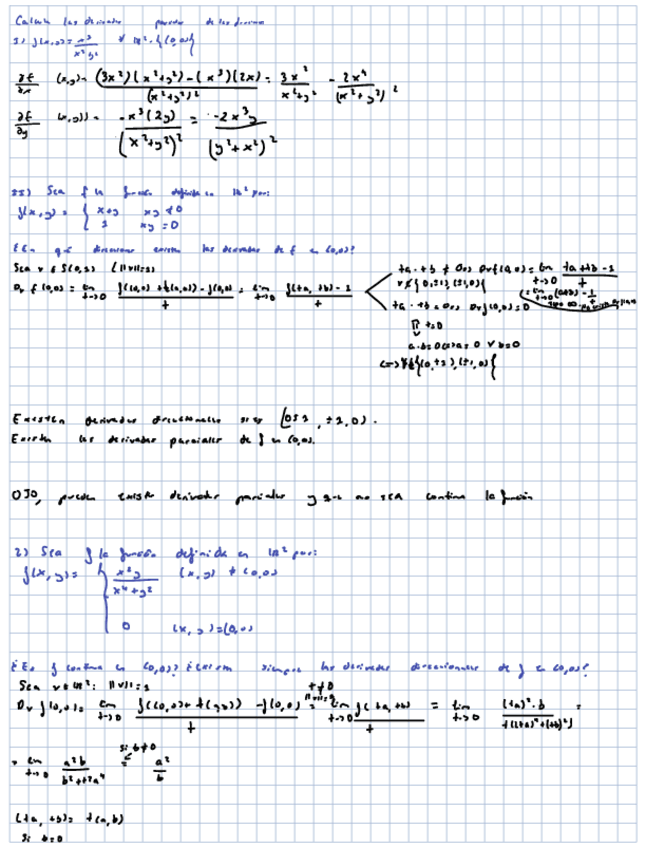 Calcula las derivadas parciales de las funciones
1) f(x,0)= x³/x²y² ∀ ℝ²·{(0,0)}
∂f/∂x (x,y)= (3x²)(x²+y²)-(x³)(2x)/(x²+y²)² = 3x²/x²+y² - 2x⁴/(x²+y²)²
∂f/∂y (x,y)) = -x³(2y)/(x²+y²)² = -2x³y/(y²+x²)²
Sea f la función definida en ℝ² por:
f(x,y) = { x+y xy ≠ 0
1 xy = 0
¿En qué direcciones existen las derivadas de f en (0,0)?
Sea v ∈ S(0,1) (||v||=1)
Dv f(0,0) = lim t→0 f((0,0)+t(a,b))-f(0,0)/t = lim t→0 f(ta, tb)-1/t
ta·tb ≠ 0 => Dv f(0,0) = lim t→0 ta+tb-1/t
ta·tb = 0 => Dv f(0,0) = 0
t≠0
a·b=0 <=> a=0 ∨ b=0
Existen derivadas direccionales si es
Existen las derivadas parciales de f en (0,0).
OJO, pueden existir derivadas parciales y que no sea continua la función
2) Sea f la función definida en ℝ² por:
f(x,y) = { x²y/x⁴+y² (x,y) ≠ (0,0)
0 (x,y)=(0,0)
¿Es f continua en (0,0)? ¿Existen siempre las derivadas direccionales de f en (0,0)?
Sea v ∈ ℝ²: ||v||=1
Dv f(0,0) = lim t→0 f((0,0)+t(a,b))-f(0,0)/t = lim t→0 f(ta,tb)/t = lim t→0 (ta)²·b/t((ta)⁴+(tb)²) =
= lim t→0 a²b/b²+t²a⁴ = si b≠0 a²/b
(ta, tb) = t(a,b)
Si b=0